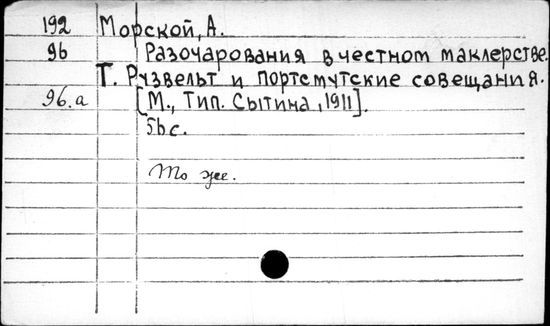 192 Морской, А.
96 Разочарования в честном маклерстве.
Т. Рузвельт и портсмутские совещания.
96.а [М., Тип. Сытина, 1911].
56 с.
То же.